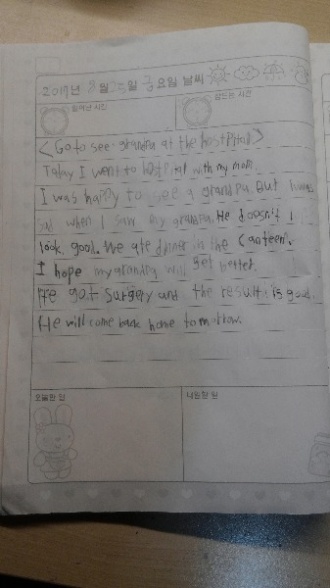 2017년 8월 25일 금요일 날씨
일어난 시간 잠드는 시간
<Go to see grandpa at the hospital>
Today I went to hospital with my mom.
I was happy to see a grandpa But I was
sad when I saw my grandpa. He doesn't
look good. We ate dinner in the Canteen.
I hope my grandpa will get better.
He got surgery and the result is good.
He will come back home tomorrow.
오늘한 일 내일할 일